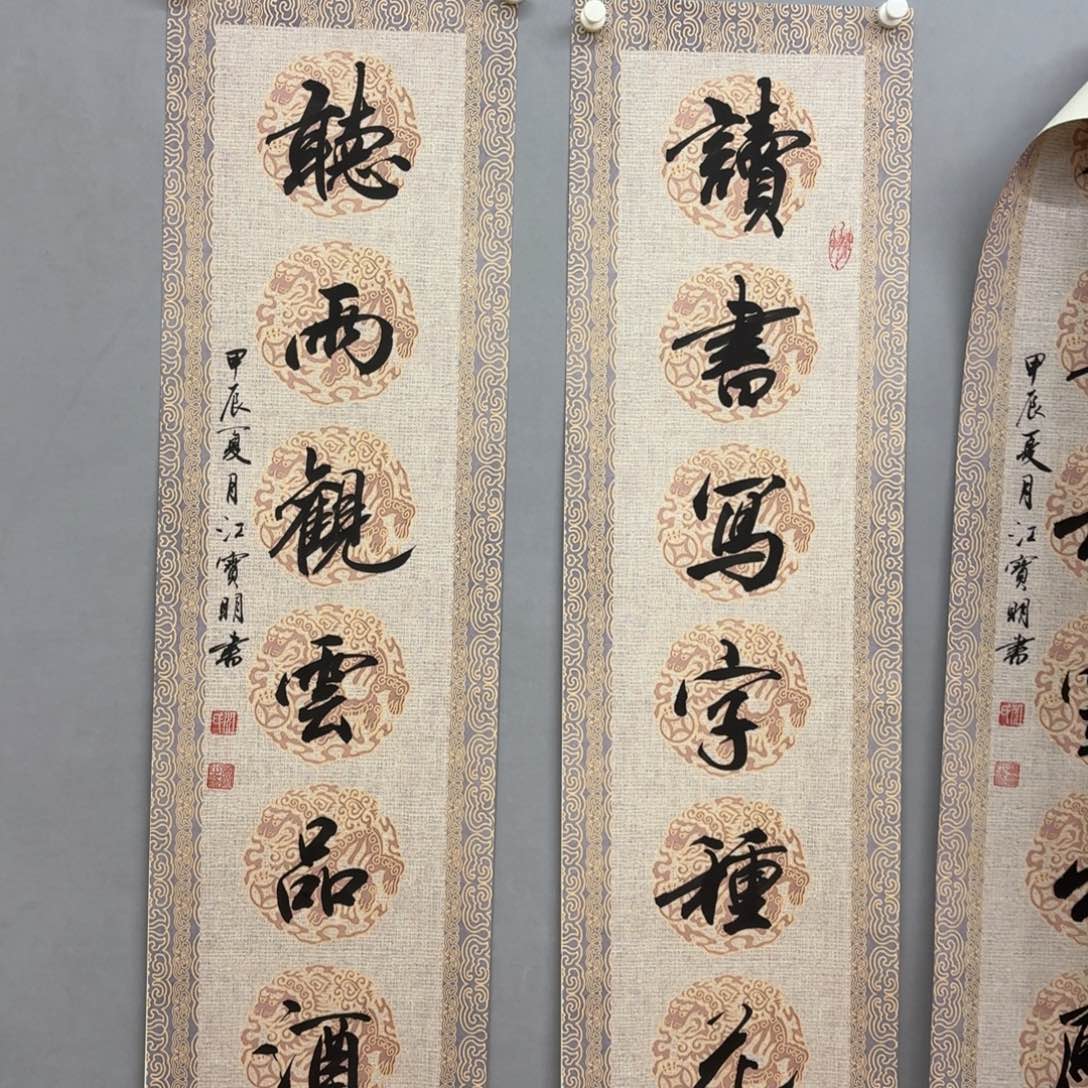 讀書寫字種花
聽雨觀雲品酒
甲辰夏月江寶明書
甲辰夏月江寶明書